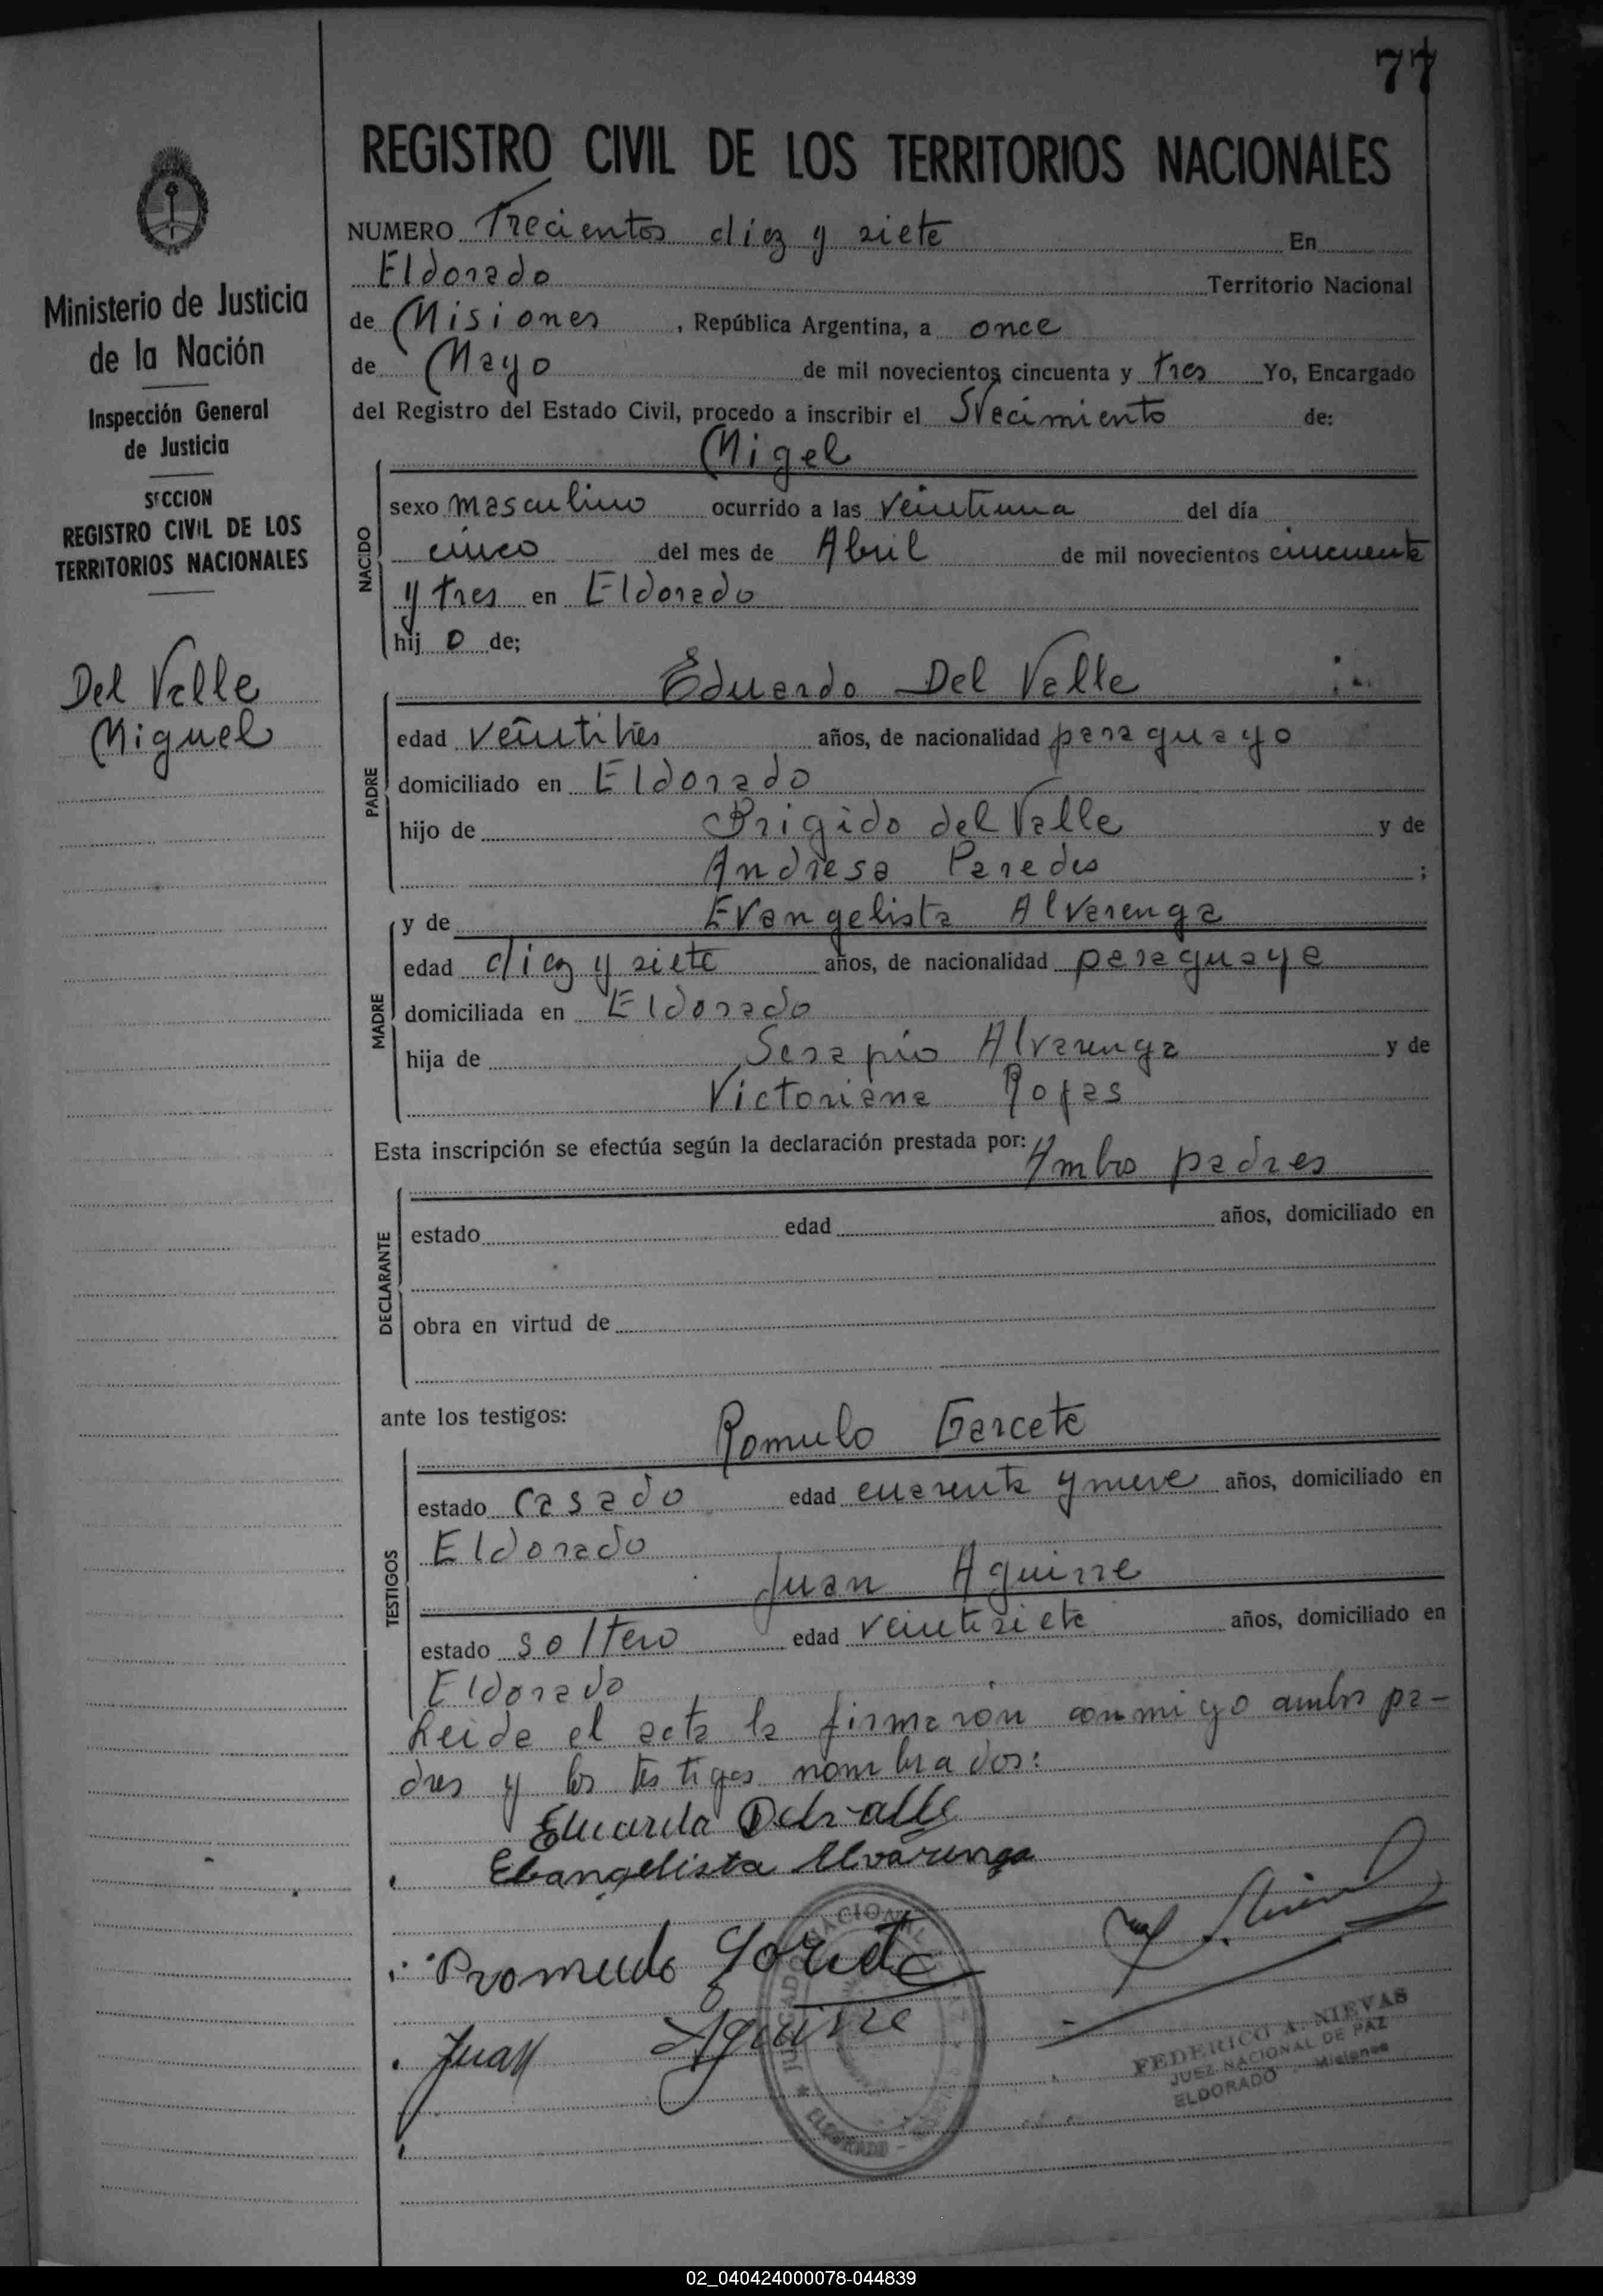 77
REGISTRO CIVIL DE LOS TERRITORIOS NACIONALES
Ministerio de Justicia
de la Nación
Inspección General
de Justicia
SECCION
REGISTRO CIVIL DE LOS
TERRITORIOS NACIONALES
Del Valle
Miguel
NUMERO Trecientos diez y siete En
Eldorado Territorio Nacional
de Misiones, República Argentina, a once
de Mayo de mil novecientos cincuenta y tres Yo, Encargado
del Registro del Estado Civil, procedo a inscribir el Nacimiento de:
Migel
NACIDO
sexo masculino ocurrido a las veintiuna del día
cinco del mes de Abril de mil novecientos cincuenta
y tres en Eldorado
hijo de;
Eduardo Del Valle
PADRE
edad veintitres años, de nacionalidad paraguayo
domiciliado en Eldorado
hijo de Brigido del Valle y de
Andresa Paredes ;
MADRE
y de Evangelista Alvarenga
edad diez y siete años, de nacionalidad paraguaya
domiciliada en Eldorado
hija de Serapio Alvarenga y de
Victoriana Rojas
Esta inscripción se efectúa según la declaración prestada por: Ambos padres
DECLARANTE
estado edad años, domiciliado en
obra en virtud de
ante los testigos:
Romulo Garcete
TESTIGOS
estado casado edad cuarenta y nueve años, domiciliado en
Eldorado
Juan Aguirre
estado soltero edad veintisiete años, domiciliado en
Eldorado
Leida el acta la firmaron conmigo ambos pa-
dres y los testigos nombrados:
Eduardo Delvalle
Ebangelista Alvarenga
Romulo
Juan Aguirre
FEDERICO A. NIEVAS
JUEZ NACIONAL DE PAZ
ELDORADO Misiones
JUZGADO NACIONAL
ELDORADO
02_040424000078-044839